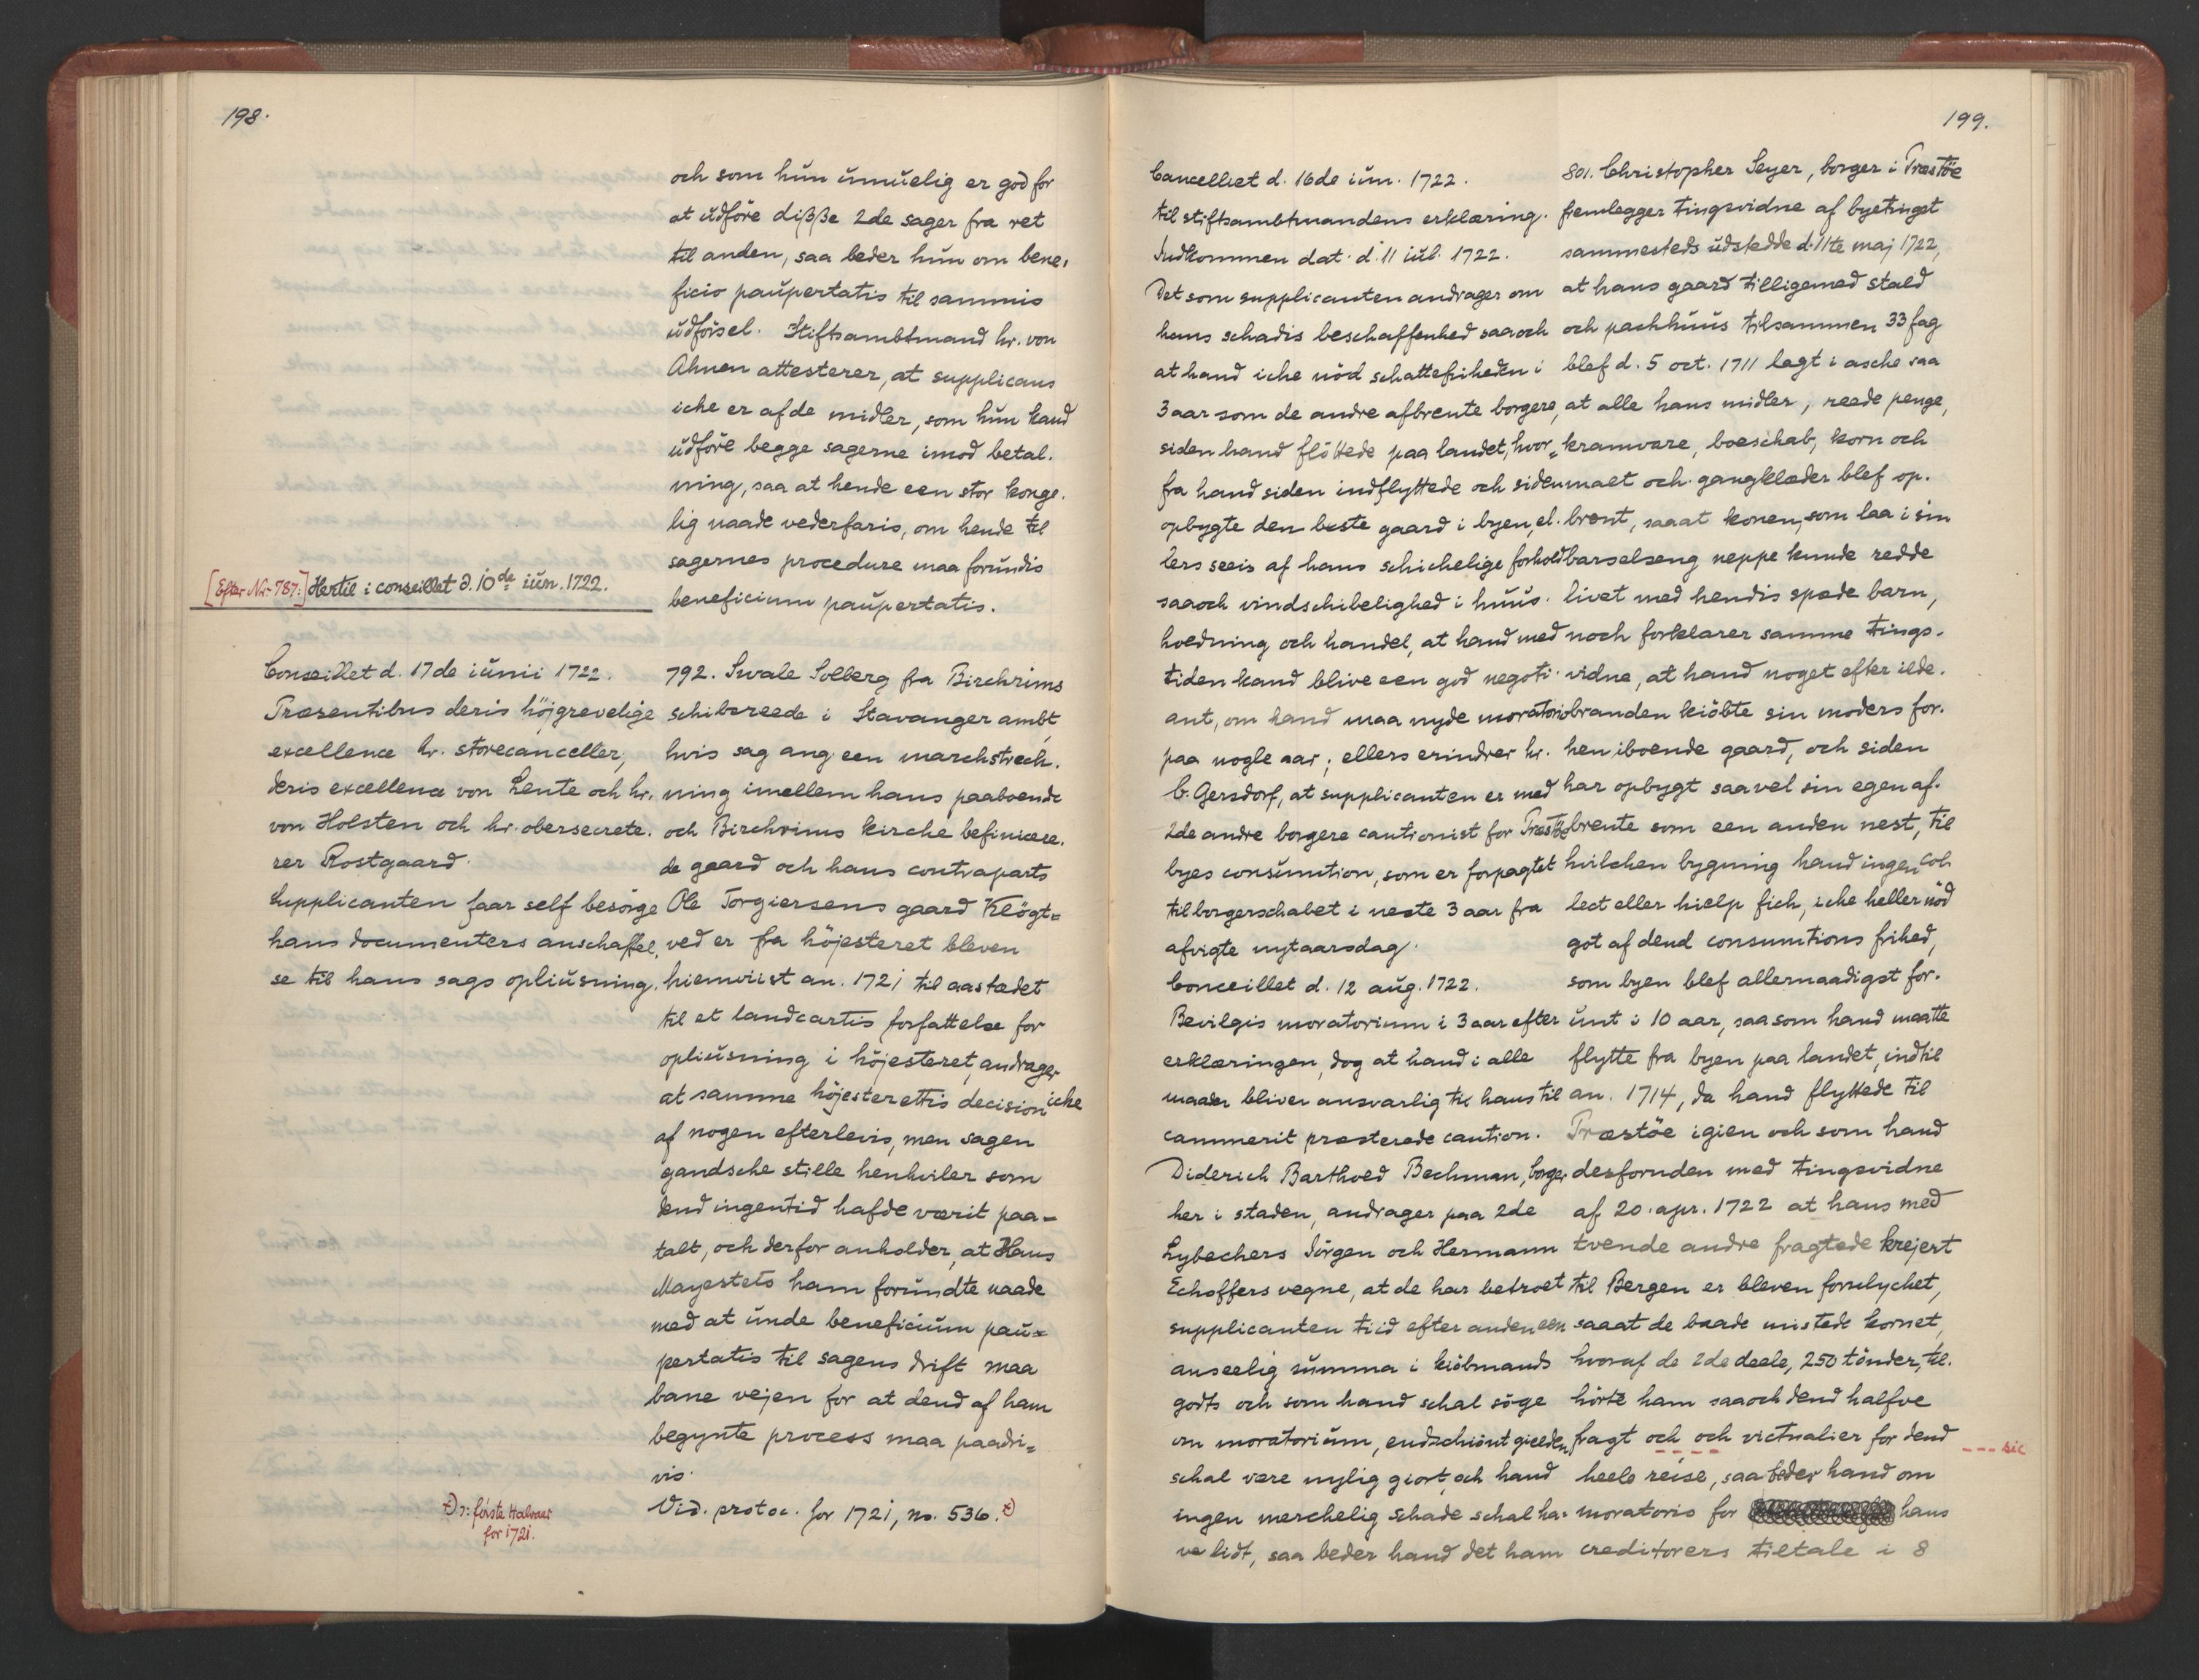 198.
och som hun umuelig er god for
at udføre dißße 2de sager fra ret
til anden, saa beder hun om bene,
ficio paupertatis til sammis
udførsel. Stiftsambtmand hr. von
Ahnen attesterer, at supplicans
iche er af de midler, som hun kand
udføre begge sagerne imod betal.
ning, saa at hende een stor konge.
lig naade vederfaris, om hende til
sagernes procedure maa forundis
beneficium paupertatis.
[Efter Nr. 787:] Hertil i conseillet d. 10de iun. 1722.
Conseillet d. 17de iunii 1722.
Præsentibus deris højgrevelige
excellence hr. storecanceller,
deris excellence von Lente och hr.
von Holsten och hr. obersecrete.
rer Rostgaard.
Supplicanten faar self besørge
hans documenters anschaffel.
se til hans sags opliusning.
792. Swale Solberg fra Birchrims
schibreede i Stavanger ambt,
hvis sag ang. een marchstrech.
ning imellem hans paaboende
och Birchrims kirche beficere.
de gaard och hans contraparts
Ole Torgiersens gaard Kløgt=
ved er fra højesteret bleven
hiemviist an. 1721 til aastædet
til et landcartis forfattelse for
opliusning i højesteret, andrager
at samme højesterettis decision iche
af nogen efterlevis, men sagen
gandsche stille henhviler som
dend ingentid hafde værit paa-
talt, och derfor anholder, at Hans
Mayestets ham forundte naade
med at unde beneficium pau=
pertatis til sagens drift maa
bane vejen for at dend af ham
begynte process maa paadri=
vis.
Vid. protoc. for 1721, no. 536. t)
t) ɔ: første Halvaar
for 1721.
199.
Cancelliet d. 16de iun. 1722.
til stiftsambtmandens erklæring.
Indkommen dat. d. 11 iul. 1722.
Det som supplicanten andrager om
hans schadis beschaffenhed saaoch
at hand iche nød schattefriheden i
3 aar som de andre afbrente borgere,
siden hand fløttede paa landet, hvor=
fra hand siden indflyttede och siden
opbygte den beste gaard i byen, el.
lers seeis af hans schichelige forhold
saaoch vindschibelighed i huus.
holdning och handel, at hand med
tiden kand blive een god negoti.
ant, om hand maa nyde moratorio
paa nogle aar; ellers erindrer hr.
C. Gersdorf, at supplicanten er med
2de andre borgere cautionist for Præstø
byes consumtion, som er forpagtet
til borgerschabet i neste 3 aar fra
afvigte nytaarsdag.
Conceillet d. 12 aug. 1722.
Bevilgis moratorium i 3 aar efter
erklæringen, dog at hand i alle
maader bliver ansvarlig til hans til
cammerit præsterede caution.
Diderich Barthold Bechman, borger
her i staden, andrager paa 2de
Lybechers Jørgen och Hermann
Echoffers vegne, at de har betroet
supplicanten tiid efter anden een
anseelig summa i kiøbmands
godts och som hand schal søge
om moratorium, endschiønt gielden
schal være nylig giort, och hand
ingen merchelig schade schal ha=
ve lidt, saa beder hand det ham
801. Christopher Seyer, borger i Præstøe
fremlegger tingsvidne af byetinget
sammesteds udstedde d. 11te maj 1722,
at hans gaard tilligemed stald
och pachhuus tilsammen 33 fag
blef d. 5 oct. 1711 lagt i asche saa
at alle hans midler, reede penge,
kramvare, boeschab, korn och
maet och gangklæder blef op.
brent, saaat konen, som laa i sin
barselseng neppe kunde redde
livet med hendis spæde barn,
noch forklarer samme tings.
vidne, at hand noget efter ilde.
branden kiøbte sin moders for.
hen iboende gaard, och siden
har opbygt saavel sin egen af.
brente som een anden nest, til
hvilchen bygning hand ingen col
lect eller hielp fich, iche heller nød
got af dend consumtions frihed,
som byen blef allernaadigst for.
unt i 10 aar, saasom hand maatte
flytte fra byen paa landet, indtil
an. 1714, da hand flyttede til
Præstøe igien och som hand
desforuden med tingsvidne
af 20. apr. 1722 at hans med
tvende andre fragtede krejert
til Bergen er bleven forulychet,
saaat de baade mistede kornet,
hvoraf de 2de deele, 250 tønder, til.
hørte ham saaoch dend halfve
fragt och och victualier for dend
--- sic
heele reise, saa beder hand om
moratorio for hans
creditorers tiltale i 8